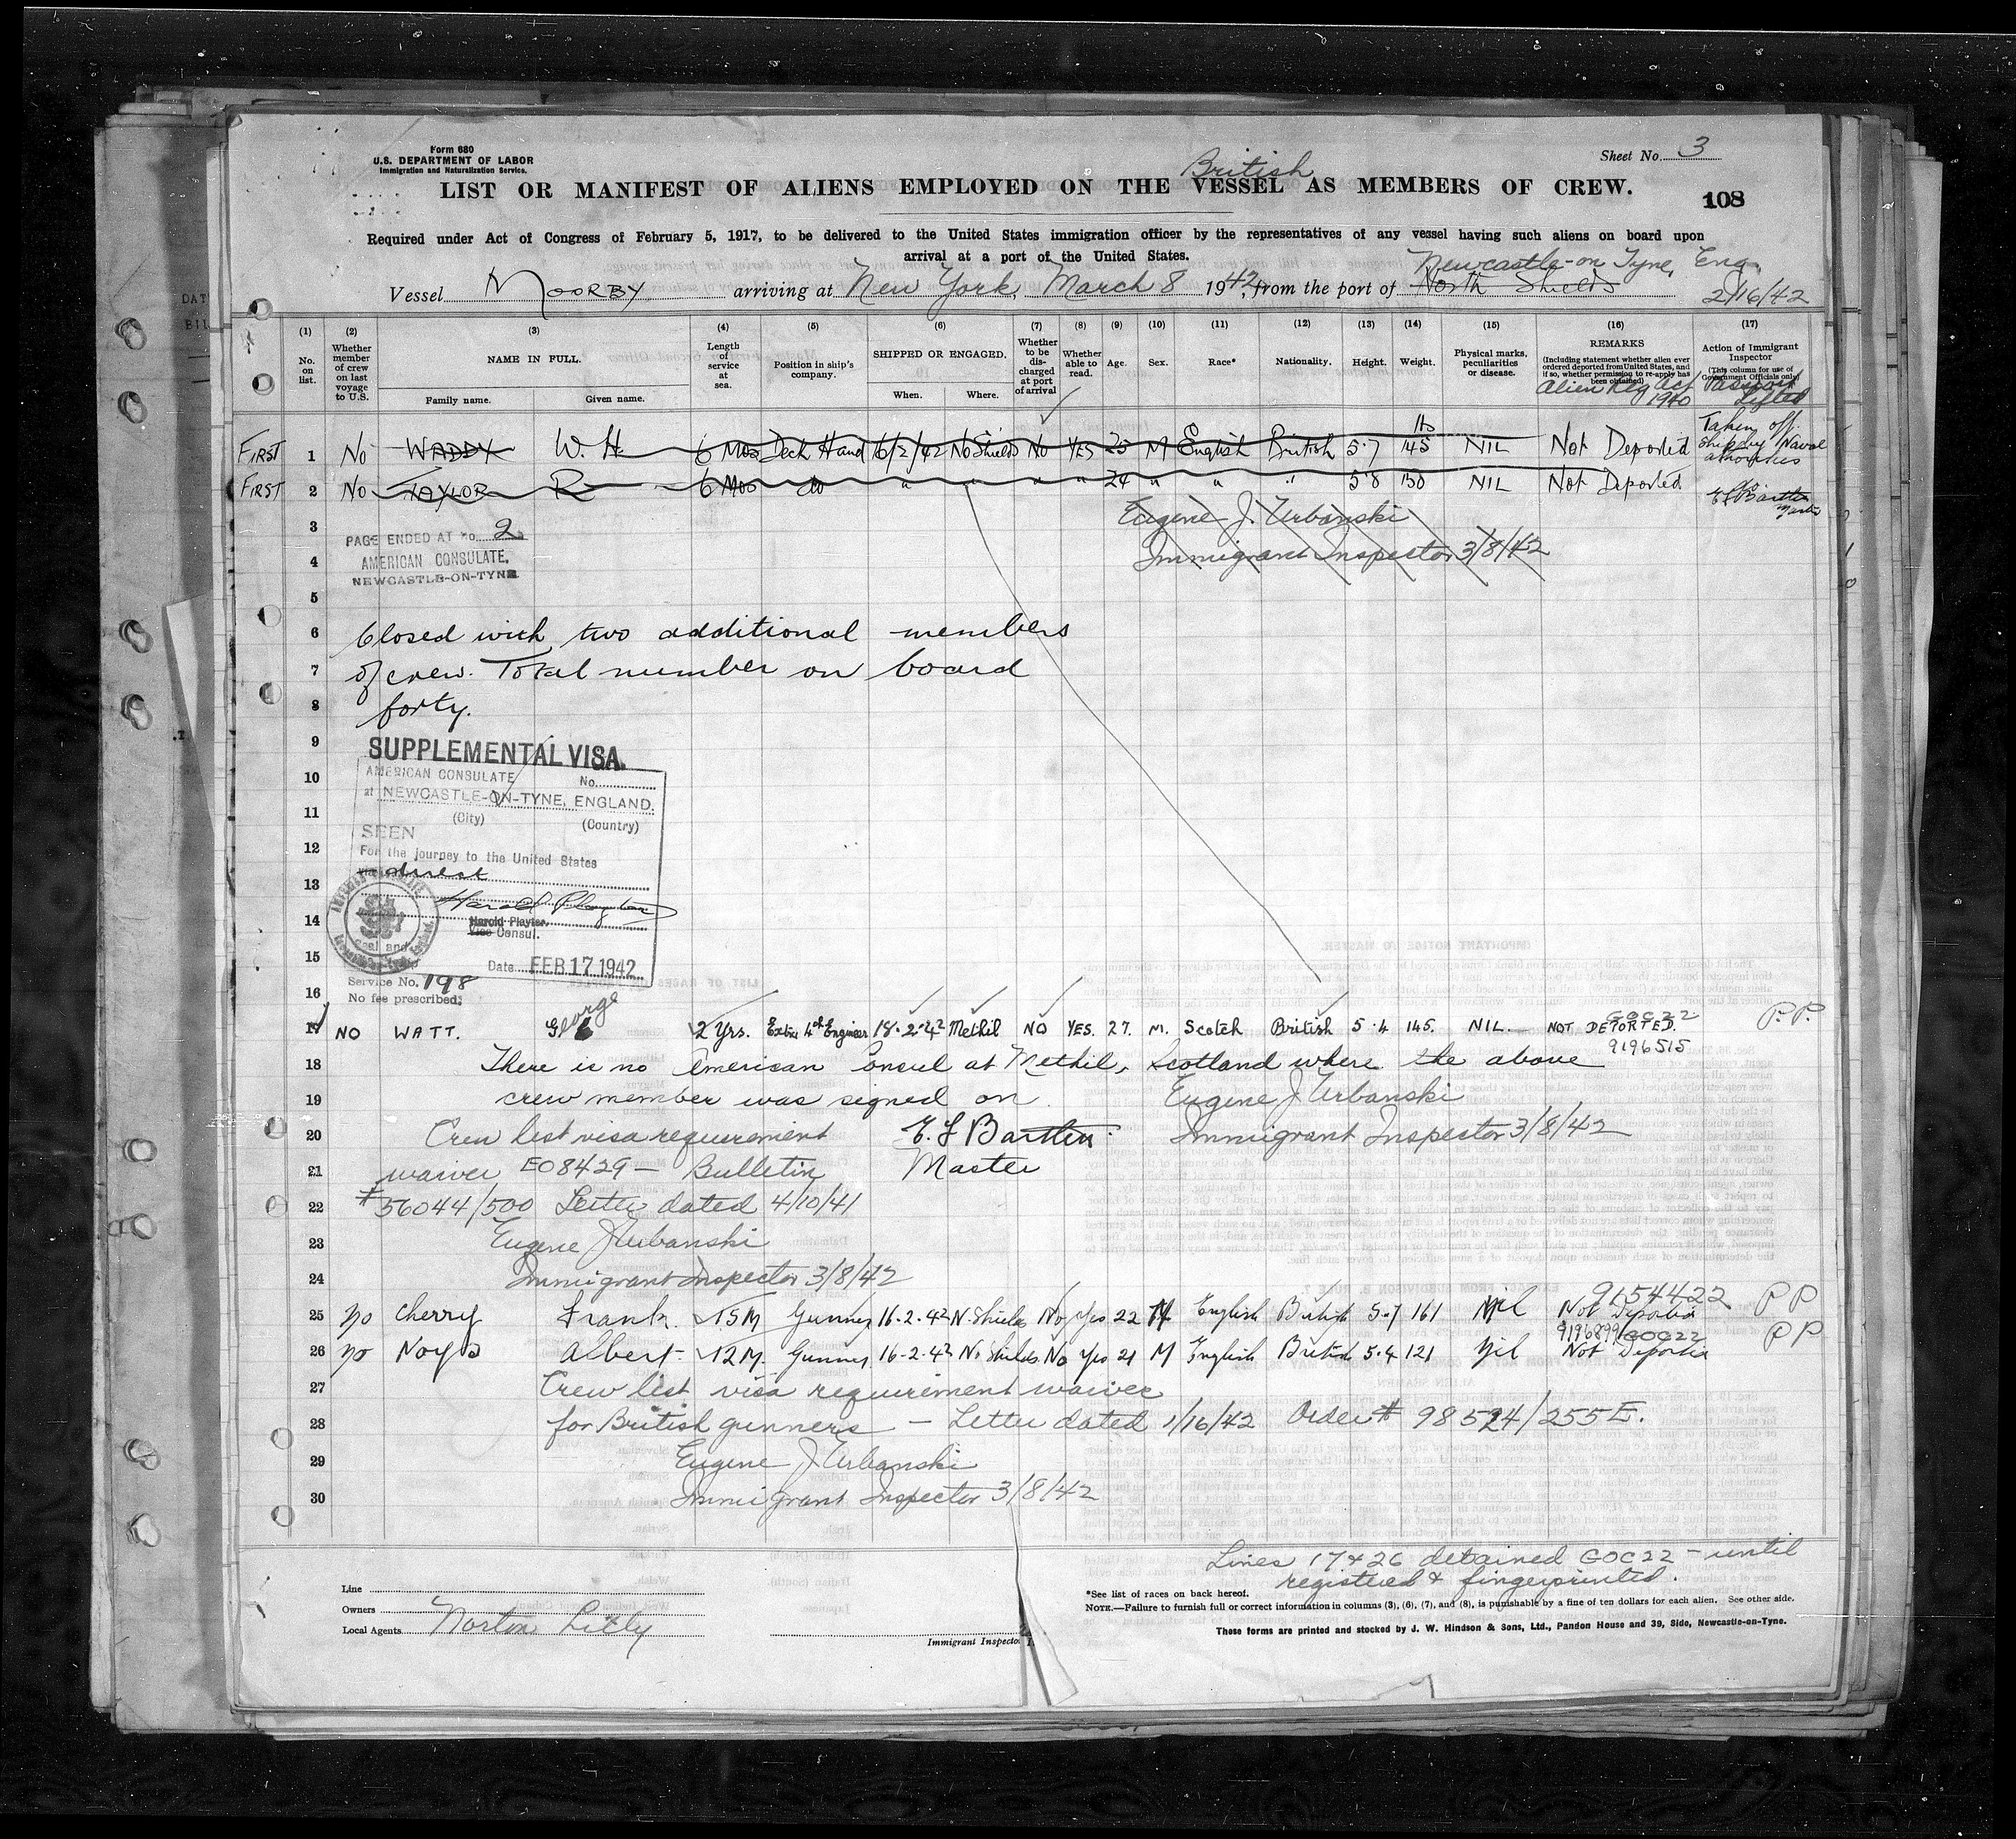 Form 680
U.S. DEPARTMENT OF LABOR
Immigration and Naturalization Service.
Sheet No. 3
British
LIST OR MANIFEST OF ALIENS EMPLOYED ON THE VESSEL AS MEMBERS OF CREW.
108
Required under Act of Congress of February 5, 1917, to be delivered to the United States immigration officer by the representatives of any vessel having such aliens on board upon
arrival at a port of the United States.
Newcastle-on Tyne, Eng.
Vessel MOORBY arriving at New York, March 8 1942, from the port of North Shields 2/16/42
(1) No. on list.
(2) Whether member of crew on last voyage to U.S.
(3) NAME IN FULL. Family name. Given name.
(4) Length of service at sea.
(5) Position in ship's company.
(6) SHIPPED OR ENGAGED. When. Where.
(7) Whether to be discharged at port of arrival
(8) Whether able to read.
(9) Age.
(10) Sex.
(11) Race*
(12) Nationality.
(13) Height.
(14) Weight.
(15) Physical marks, peculiarities or disease.
(16) REMARKS (Including statement whether alien ever ordered deported from United States, and if so, whether permission to re-apply has been obtained)
Alien Reg Act 1940
(17) Action of Immigrant Inspector (This column for use of Government Officials only)
Passport Lifted
FIRST 1 No WADDY W. H. 6 Mos Deck Hand 16/2/42 No Shields NO YES 25 M English British 5·7 145 NIL Not Deported Taken off ship by Naval
FIRST 2 No TAYLOR R 6 Mos do " " " " 24 " " " 5·8 130 NIL Not Deported
3 Eugene J. Urbanski
PAGE ENDED AT No. 2
4 Immigrant Inspector 3/8/42
AMERICAN CONSULATE,
NEWCASTLE-ON-TYNE
5
6 Closed with two additional members
7 of crew. Total number on board
8 forty.
9 SUPPLEMENTAL VISA.
10 AMERICAN CONSULATE No.
at NEWCASTLE-ON-TYNE, ENGLAND.
11 (City) (Country)
SEEN
12 For the journey to the United States
via direct
13 Harold Playter
14 Harold Playter.
Vice Consul.
15 Date FEB 17 1942
Service No. 198
16 No fee prescribed.
17 NO WATT. George 2 Yrs. Extra 4th Engineer 18·2·42 Methil NO YES. 27. M. Scotch British 5·4 145. NIL. NOT DEPORTED. GOC22 9196515 P.P.
18 There is no American Consul at Methil, Scotland where the above
19 crew member was signed on Eugene J Urbanski
20 Crew list visa requirement Immigrant Inspector 3/8/42
21 waiver EO8429 — Bulletin Master
22 #56044/500 Letter dated 4/10/41
23 Eugene J Urbanski
24 Immigrant Inspector 3/8/42
25 No Cherry Frank. 15M Gunner 16·2·42 N. Shields No Yes 22 M English British 5·7 161 Nil 9154422 Not Deported P P
26 No Noyes Albert 12M. Gunner 16-2-42 No Shields No Yes 21 M English British 5·4 121 Nil 9196899 GOC22 Not Deported P P
27 Crew list visa requirement waiver
28 for British gunners — Letter dated 1/16/42 Order # 98524/255E.
29 Eugene J Urbanski
30 Immigrant Inspector 3/8/42
Lines 17 & 26 detained GOC22 — until
registered & fingerprinted.
Line
Owners
Local Agents Norton Lilly
Immigrant Inspector
*See list of races on back hereof.
NOTE.—Failure to furnish full or correct information in columns (3), (6), (7), and (8), is punishable by a fine of ten dollars for each alien. See other side.
These forms are printed and stocked by J. W. Hindson & Sons, Ltd., Pandon House and 39, Side, Newcastle-on-Tyne.